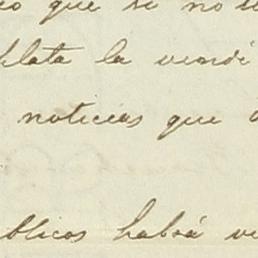 que si no
plata la vendi
noticias que
blicos habrá